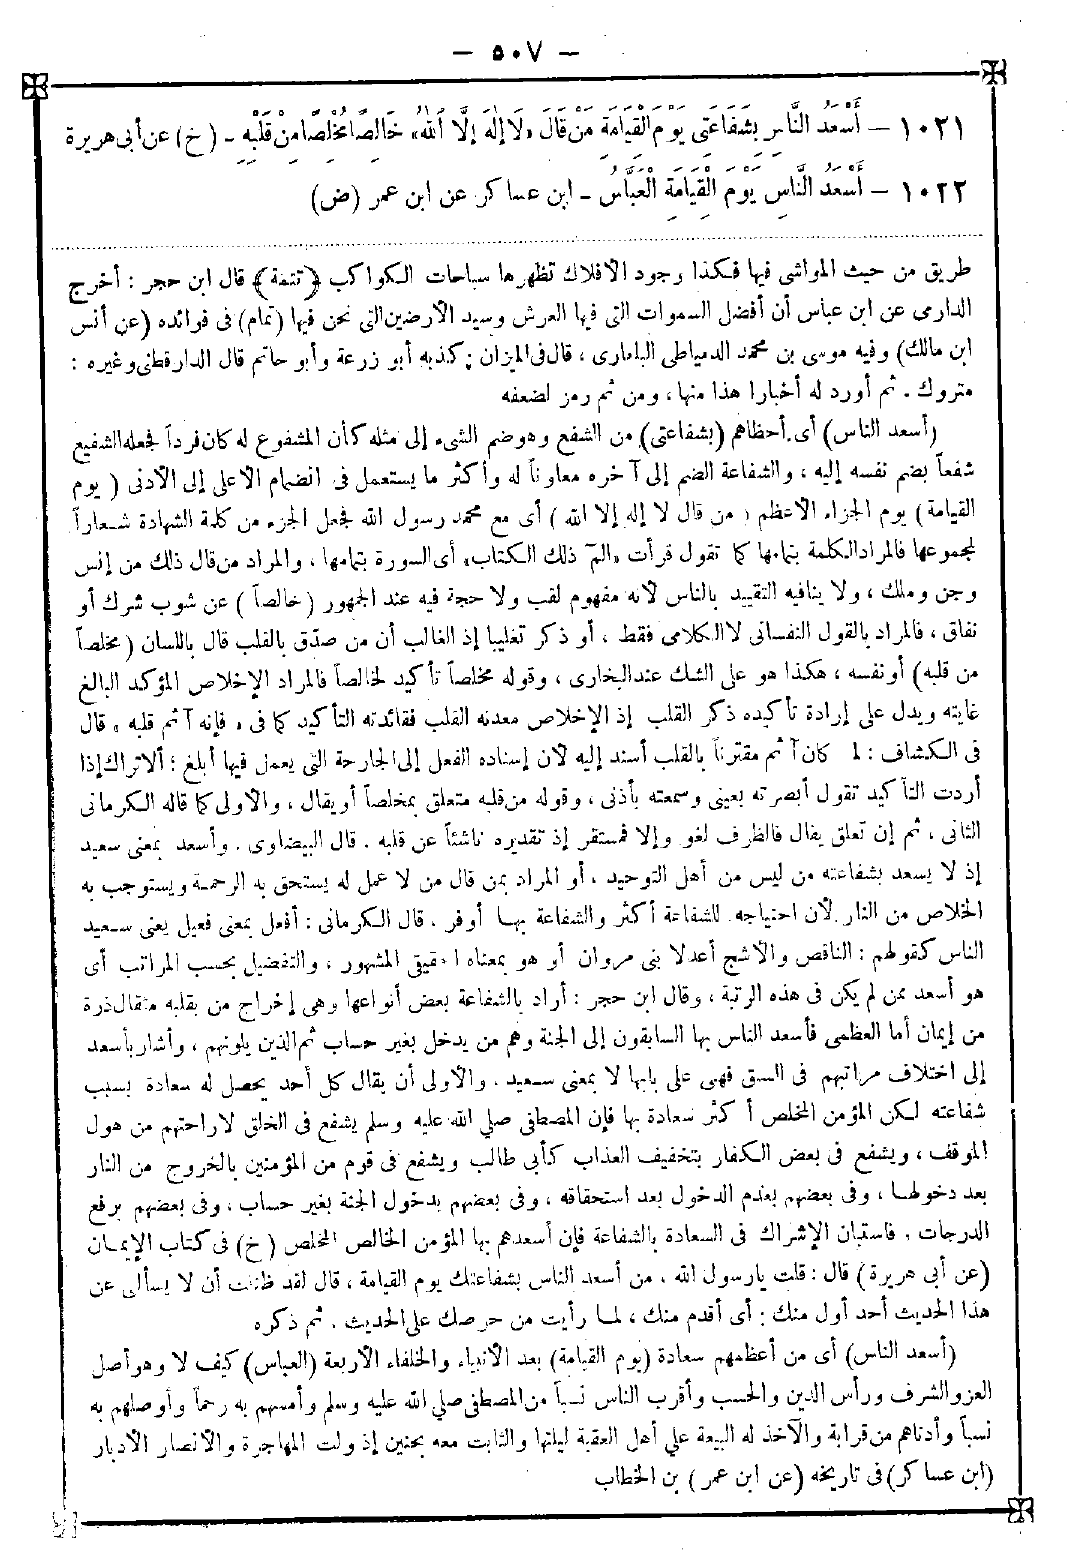 — ٥٠٧ —
١٠٢١ — أَسْعَدُ النَّاسِ بِشَفَاعَتِي يَوْمَ الْقِيَامَةِ مَنْ قَالَ «لَا إِلٰهَ إِلَّا اللهُ» خَالِصًا مُخْلِصًا مِنْ قَلْبِهِ ـ (خ) عن أبى هريرة
١٠٢٢ — أَسْعَدُ النَّاسِ يَوْمَ الْقِيَامَةِ الْعَبَّاسُ ـ ابن عساكر عن ابن عمر (ض)
طريق من حيث المواشى فيها فكذا وجود الافلاك تظهرها سباحات الكواكب ﴿تتمة﴾ قال ابن حجر : أخرج
الدارمى عن ابن عباس أن أفضل السموات التى فيها العرش وسيد الأرضين التى نحن فيها (تمام) فى فوائده (عن أنس
ابن مالك) وفيه موسى بن محمد الدمياطى البلمارى ، قال فى الميزان : كذبه أبو زرعة وأبو حاتم قال الدارقطنى وغيره :
متروك . ثم أورد له أخبارا هذا منها ، ومن ثم رمز لضعفه
(أسعد الناس) أى أحظاهم (بشفاعتى) من الشفع وهو ضم الشىء إلى مثله كأن المشفوع له كان فرداً فجعله الشفيع
شفعاً بضم نفسه إليه ، والشفاعة الضم إلى آخره معاوناً له وأكثر ما يستعمل فى انضمام الاعلى إلى الأدنى (يوم
القيامة) يوم الجزاء الأعظم (من قال لا إله إلا الله) أى مع محمد رسول الله فجعل الجزء من كلمة الشهادة شعاراً
لمجموعها فالمراد الكلمة بتمامها كما تقول قرأت «الم ذلك الكتاب» أى السورة بتمامها ، والمراد من قال ذلك من إنس
وجن وملك ، ولا ينافيه التقييد بالناس لأنه مفهوم لقب ولا حجة فيه عند الجمهور (خالصاً) عن شوب شرك أو
نفاق ، فالمراد بالقول النفسانى لا الكلامى فقط ، أو ذكر تغليبا إذ الغالب أن من صدّق بالقلب قال باللسان (مخلصاً
من قلبه) أو نفسه ، هكذا هو على الشك عند البخارى ، وقوله مخلصاً تأكيد لخالصاً فالمراد الإخلاص المؤكد البالغ
غايته ويدل على إرادة تأكيده ذكر القلب إذ الإخلاص معدنه القلب ففائدته التأكيد كما فى « فإنه آثم قلبه » قال
فى الكشاف : لما كان آثم مقترناً بالقلب أسند إليه لأن إسناده الفعل إلى الجارحة التى يعمل فيها أبلغ ؛ ألا تراك إذا
أردت التأكيد تقول أبصرته بعينى وسمعته بأذنى ، وقوله من قلبه متعلق بمخلصاً أو يقال ، والأولى كما قاله الكرمانى
الثانى ، ثم إن تعلق بقال فالظرف لغو وإلا فمستقر إذ تقديره ناشئاً عن قلبه . قال البيضاوى . وأسعد بمعنى سعيد
إذ لا يسعد بشفاعته من ليس من أهل التوحيد ، أو المراد بمن قال من لا عمل له يستحق به الرحمة ويستوجب به
الخلاص من النار لأن احتياجه للشفاعة أكثر والشفاعة بها أوفر . قال الكرمانى : أفعل بمعنى فعيل يعنى سعيد
الناس كقولهم : الناقص والأشج أعدلا بنى مروان أو هو بمعناه الحقيقى المشهور ، والتفضيل بحسب المراتب أى
هو أسعد ممن لم يكن فى هذه الرتبة ، وقال ابن حجر : أراد بالشفاعة بعض أنواعها وهى إخراج من بقلبه مثقال ذرة
من إيمان أما العظمى فأسعد الناس بها السابقون إلى الجنة وهم من يدخل بغير حساب ثم الذين يلونهم ، وأشار بأسعد
إلى اختلاف مراتبهم فى السبق فهى على بابها لا بمعنى سعيد . والأولى أن يقال كل أحد يحصل له سعادة بسبب
شفاعته لكن المؤمن المخلص أكثر سعادة بها فإن المصطفى صلى الله عليه وسلم يشفع فى الخلق لاراحتهم من هول
الموقف ، ويشفع فى بعض الكفار بتخفيف العذاب كأبى طالب ويشفع فى قوم من المؤمنين بالخروج من النار
بعد دخولها ، وفى بعضهم بعدم الدخول بعد استحقاقه ، وفى بعضهم بدخول الجنة بغير حساب ، وفى بعضهم برفع
الدرجات . فاستبان الإشراك فى السعادة بالشفاعة فإن أسعدهم بها المؤمن الخالص المخلص (خ) فى كتاب الإيمان
(عن أبى هريرة) قال : قلت يارسول الله ، من أسعد الناس بشفاعتك يوم القيامة ، قال لقد ظننت أن لا يسألنى عن
هذا الحديث أحد أول منك : أى أقدم منك ، لما رأيت من حرصك على الحديث . ثم ذكره
(أسعد الناس) أى من أعظمهم سعادة (يوم القيامة) بعد الأنبياء والخلفاء الأربعة (العباس) كيف لا وهو أصل
العز والشرف ورأس الدين والحسب وأقرب الناس نسباً من المصطفى صلى الله عليه وسلم وأمسهم به رحماً وأوصلهم به
نسباً وأدناهم من قرابة والآخذ له البيعة على أهل العقبة ليلتها والثابت معه بحنين إذ ولت المهاجرة والأنصار الأدبار
(ابن عساكر) فى تاريخه (عن ابن عمر) بن الخطاب